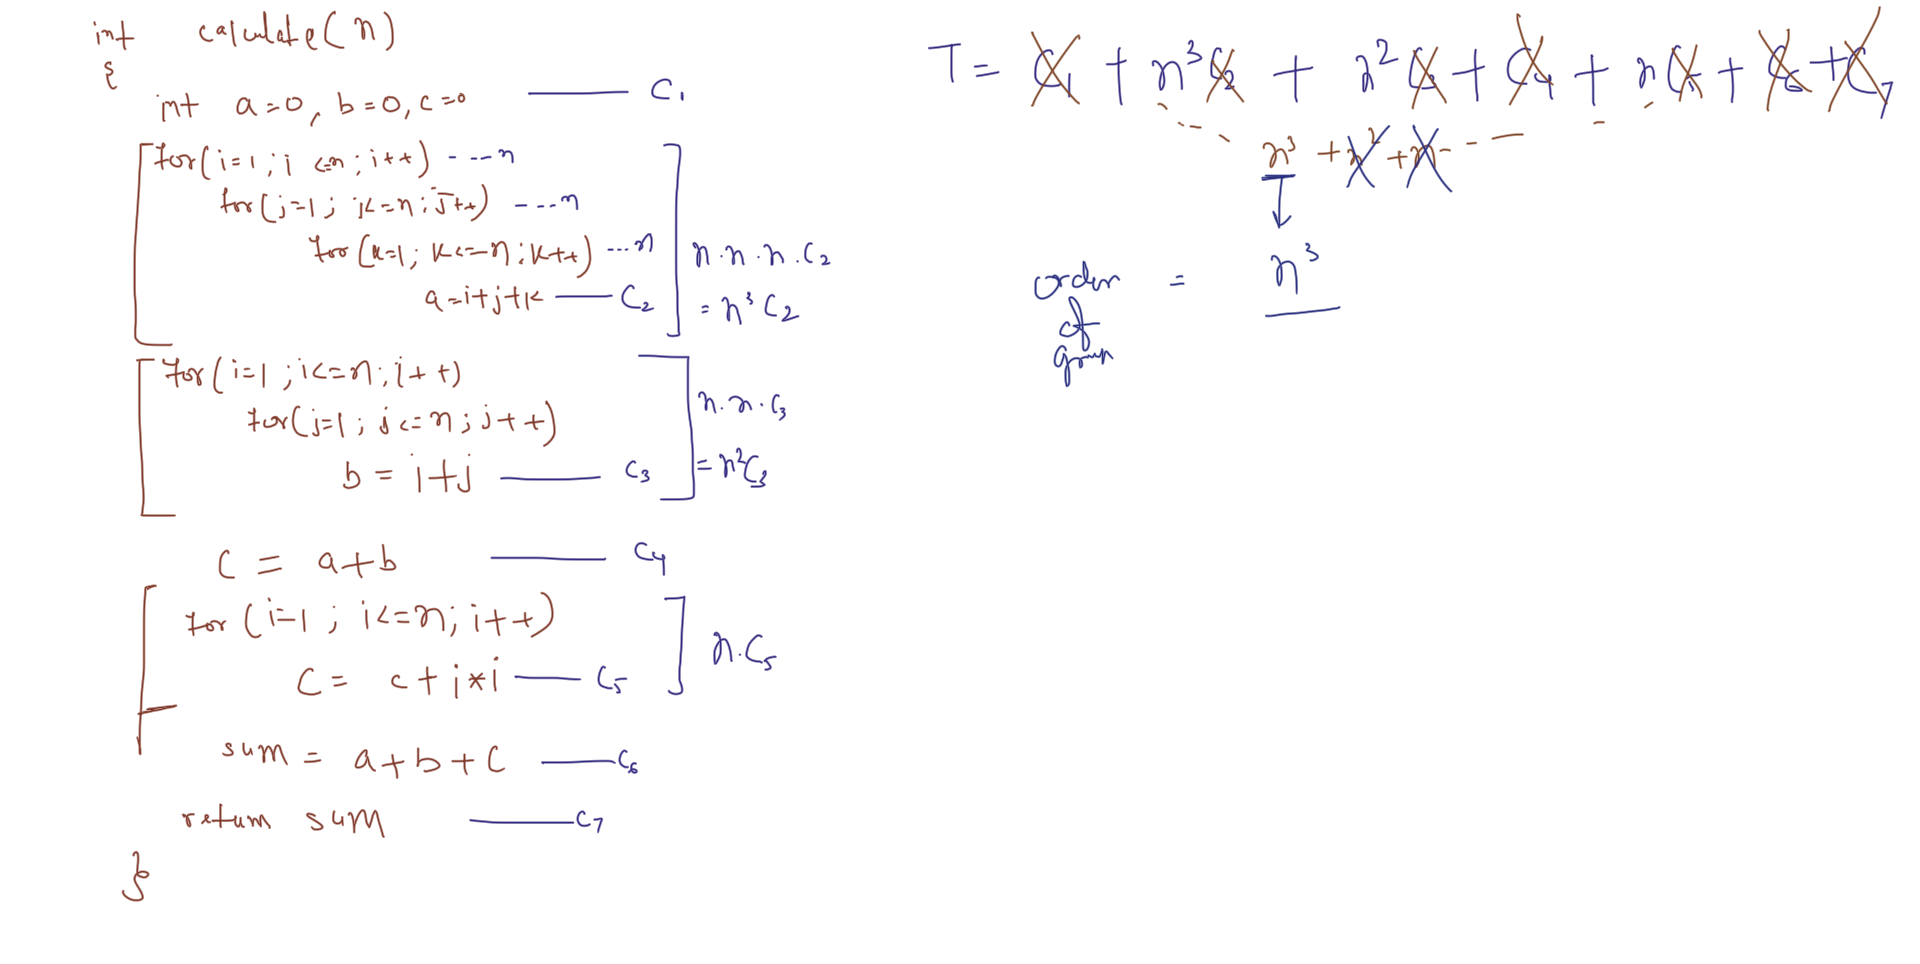 int calculate(n)
{
int a=0, b=0, c=0 —— C1
for(i=1; i<=n; i++) ----n
for(j=1; j<=n; j++) ----n
for(k=1; k<=n; k++) ...n
a=i+j+k —— C2
n.n.n.C2
= n³C2
for(i=1; i<=n; i++)
for(j=1; j<=n; j++)
b = i+j —— C3
n.n.C3
= n²C3
C = a+b —— C4
for(i=1; i<=n; i++)
C = c+i*i —— C5
n.C5
sum = a+b+c —— C6
return sum —— C7
}
T = C1 + n³C2 + n²C3 + C4 + nC5 + C6 + C7
n³ + n² + n
order of grown = n³